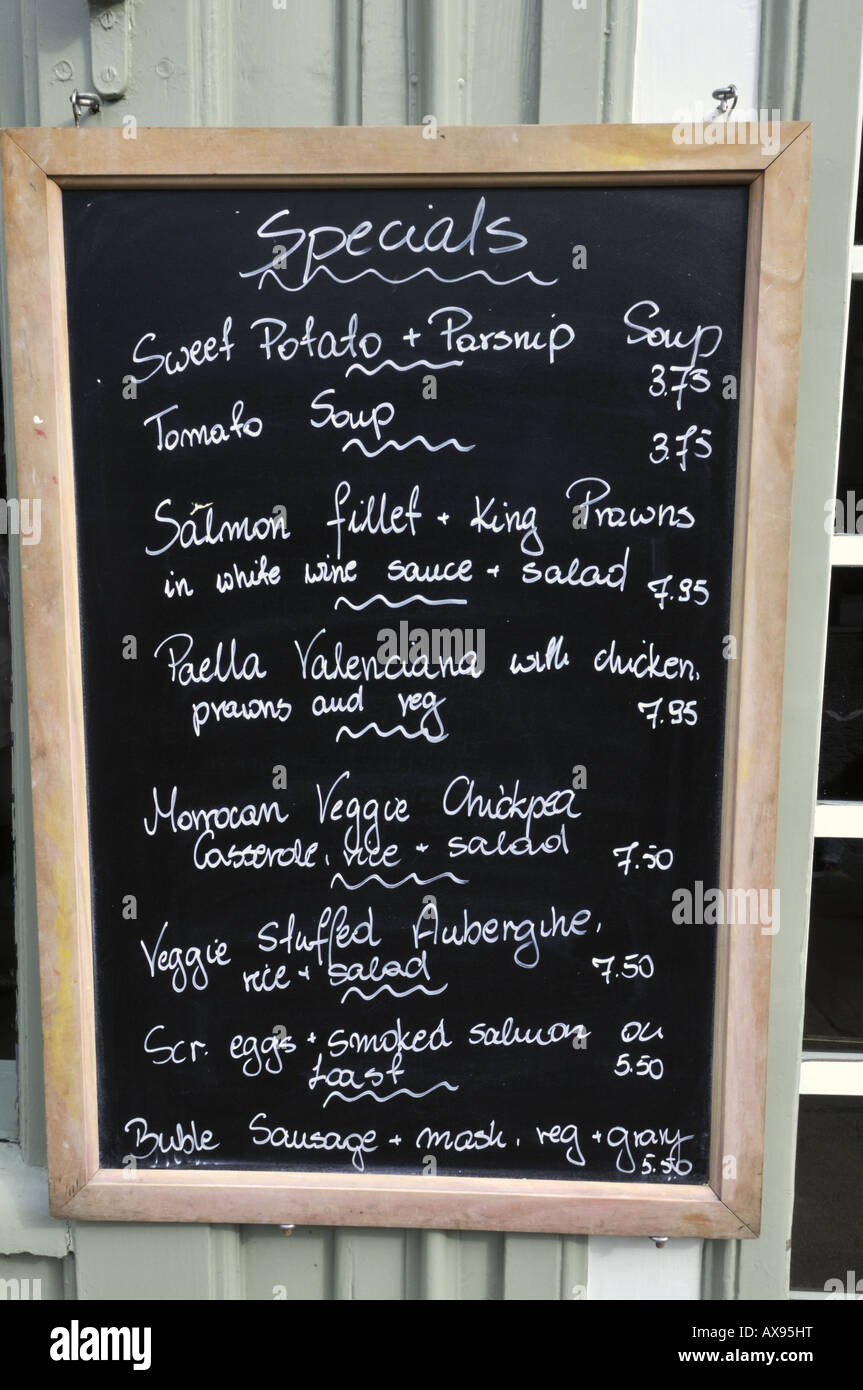 Specials
Sweet Potato + Parsnip Soup
3.75
Tomato Soup
3.75
Salmon fillet + King Prawns
in white wine sauce + salad 7.95
Paella Valenciana with chicken,
prawns and veg 7.95
Morrocan Veggie Chickpea
Casserole, rice + salad 7.50
Veggie stuffed Aubergine,
rice + salad 7.50
Scr. eggs + smoked salmon on
toast 5.50
Buble Sausage + mash, veg + gravy
5.50
alamy
Image ID: AX95HT
www.alamy.com